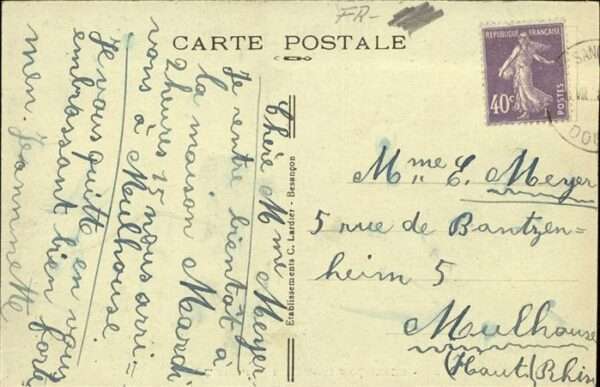 FR-
CARTE POSTALE
REPUBLIQUE FRANÇAISE
40c
POSTES
DOU
Chère Mme Meyer
Je rentre bientôt à
la maison Mardi
2 heures 15 nous arri=
vons à Mulhouse.
Je vous quitte en vous
embrassant bien fort
men. Jeannette
Etablissements C. Lardier - Besançon
Mme E. Meyer
5 rue de Bantzen=
heim 5
Mulhouse
(Haut/Rhin